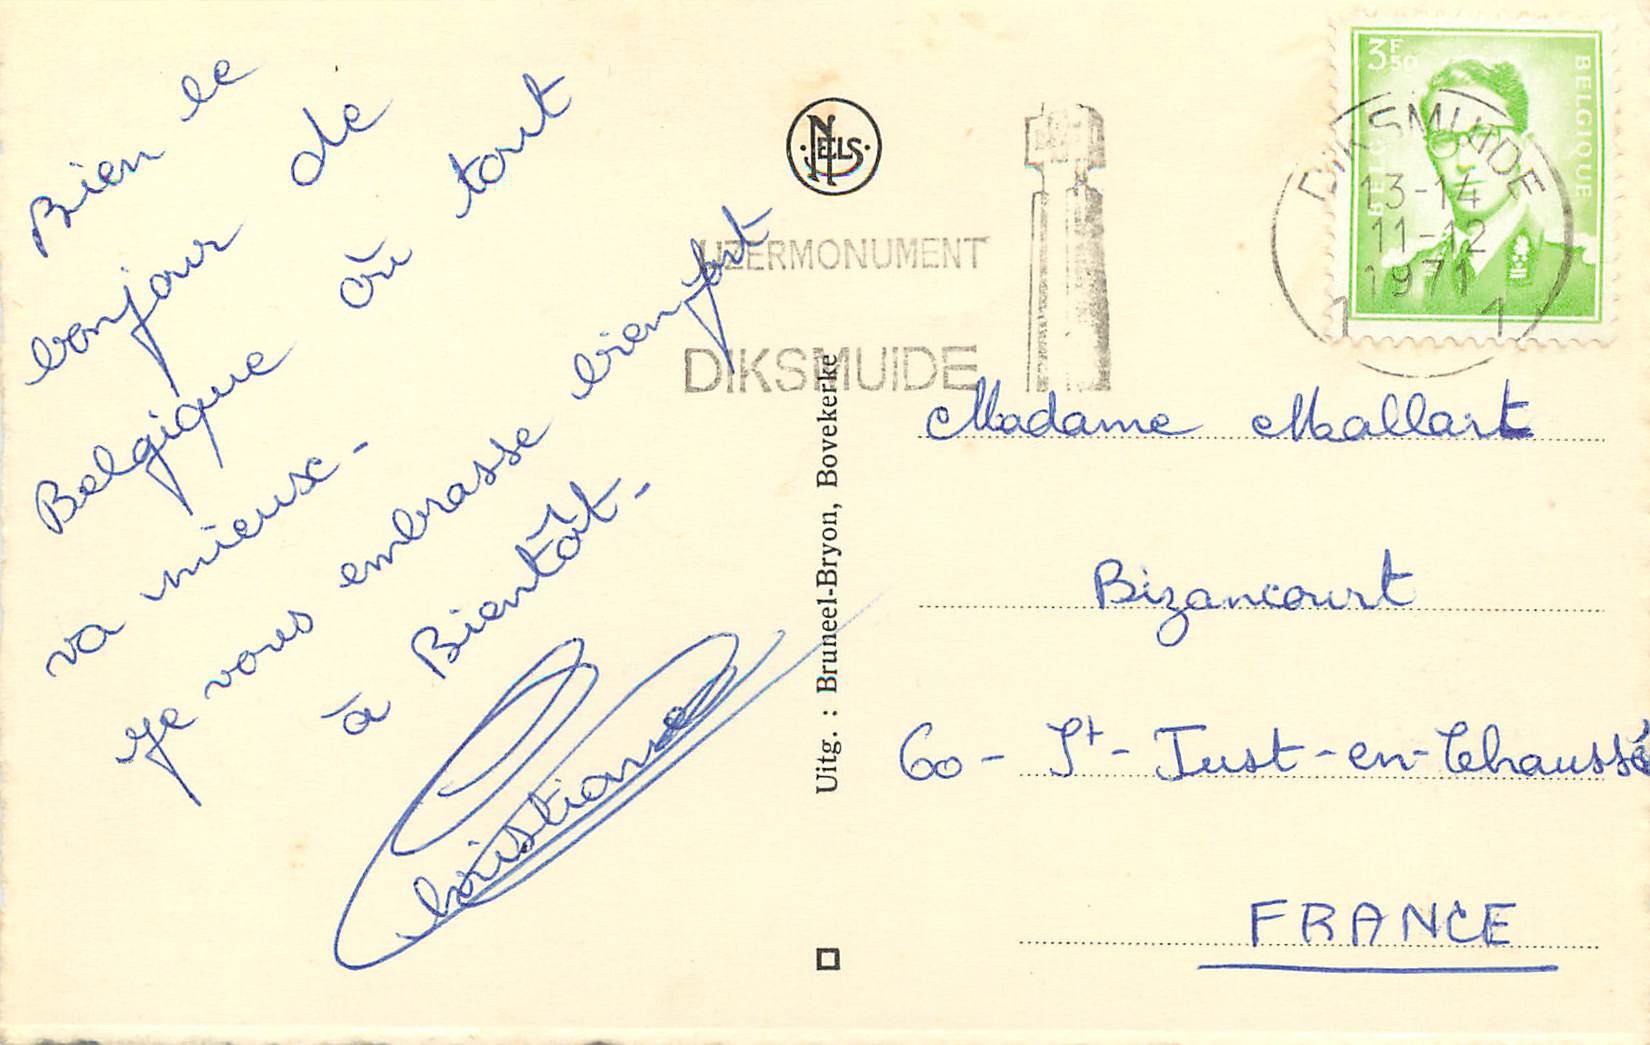 Bien le
bonjour de
Belgique où tout
va mieux -
je vous embrasse bien fort
à Bientôt -
Christiane
NELS
IJZERMONUMENT
DIKSMUIDE
Uitg. : Bruneel-Bryon, Bovekerke
3F50
BELGIË
BELGIQUE
DIKSMUIDE
13-14
11-12
1971
1 1
Madame Mallart
Bizancourt
60 - St - Just - en - Chaussé
FRANCE